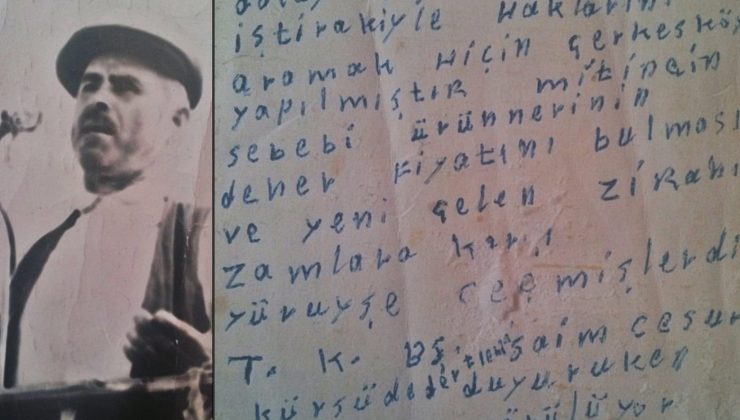 iştirakiyle Hakların
aramak Hiçin çerkesköy
yapılmıştır mitingin
sebebi ürünnerinin
deher fiyatını bulması
ve yeni gelen zirahi
zamlara karşı
yüruyşe geçmişlerdi
T. K. BŞ. Saim cesur
kürsüde dertlerini duyururken